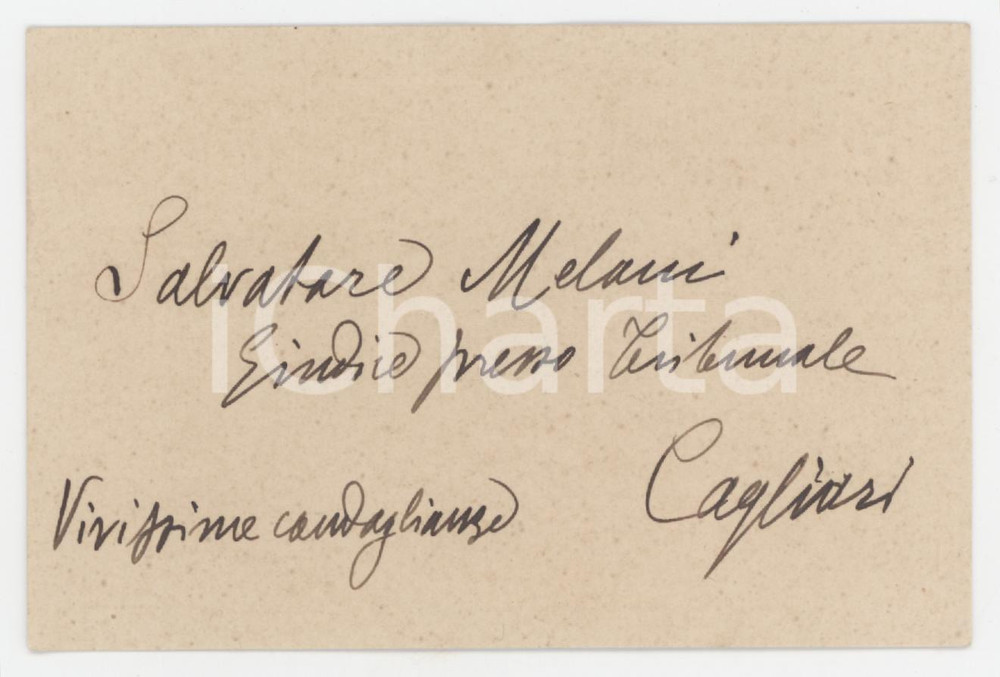 Salvatore Melani
Giudice presso Tribunale
Cagliari
Vivissime condoglianze
ICharta